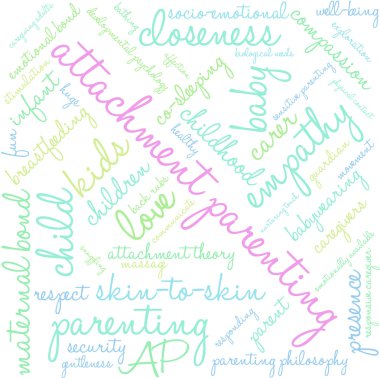 well-being
socio-emotional
bathing
closeness
compassion
biological needs
exploration
developmental psychology
emotional bond
affection
stimulation
attachment parenting
infant
fun
hugs
co-sleeping
baby
sensitive parenting
physical contact
carer
empathy
healthy
childhood
breastfeeding
kids
guardian
movement
children
back rubs
love
communicate
nurturing touch
babywearing
caregivers
maternal bond
child
attachment theory
massag
emotionally available
respect
skin-to-skin
presence
responsive caregivers
parenting
responding
parent
security
AP
gentleness
parenting philosophy